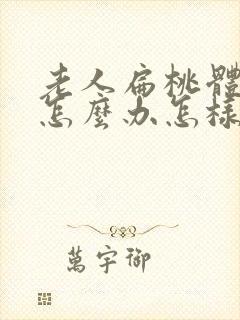 老人扁桃體
怎麼办怎樣
萬宇御